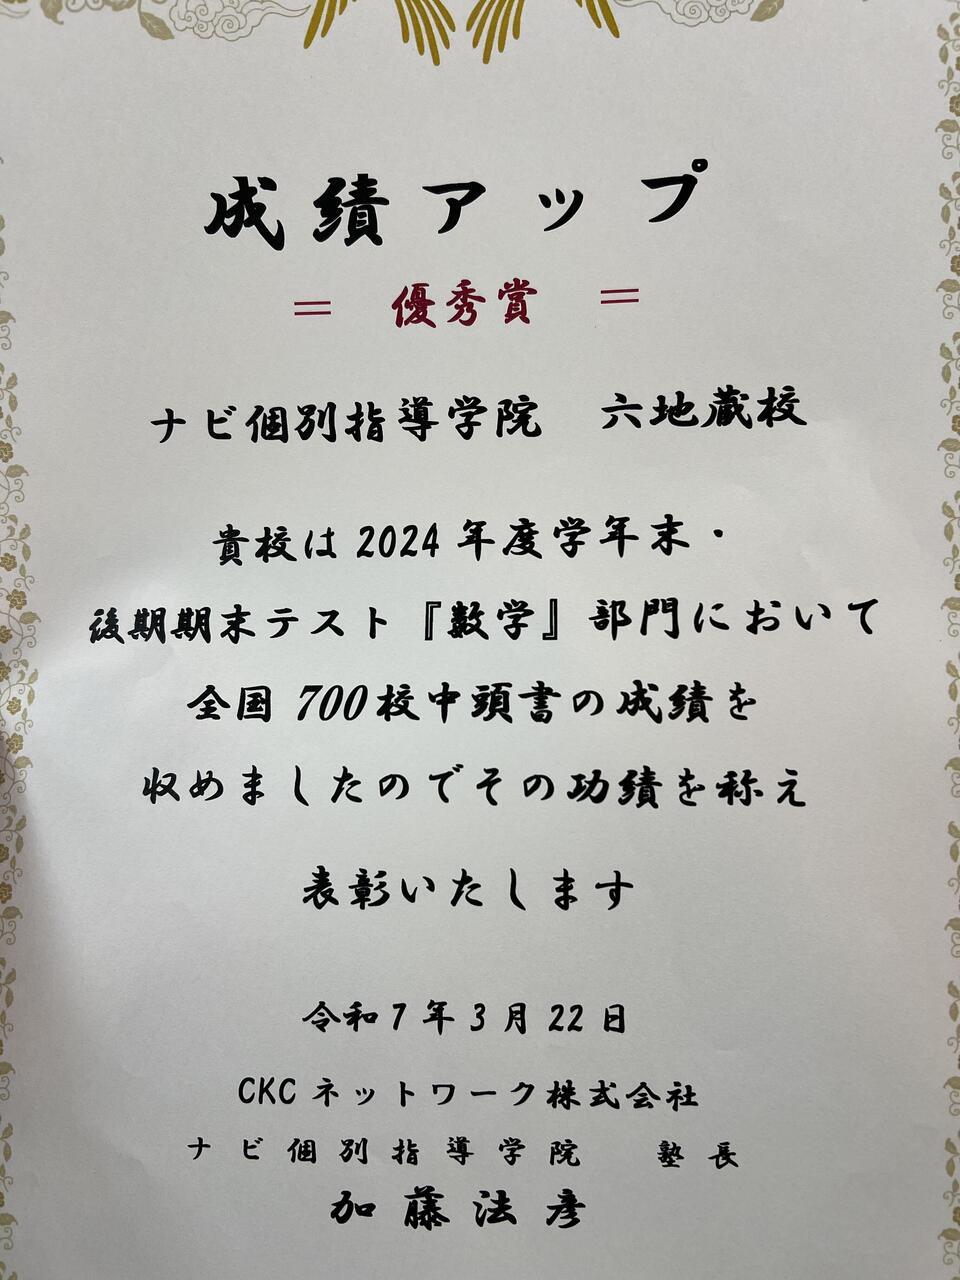 成績アップ
＝ 優秀賞 ＝
ナビ個別指導学院 六地蔵校
貴校は 2024 年度学年末・
後期期末テスト『数学』部門において
全国 700校中頭書の成績を
収めましたのでその功績を称え
表彰いたします
令和 7 年 3 月 22 日
CKC ネットワーク株式会社
ナビ個別指導学院 塾長
加藤法彦